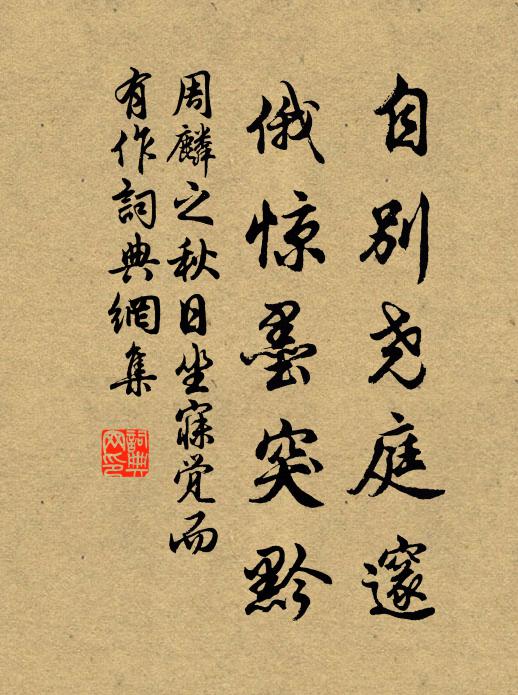 自别尧庭邃
俄惊墨突黔
周麟之秋日坐寐觉而
有作詞典網集
詞典
网印